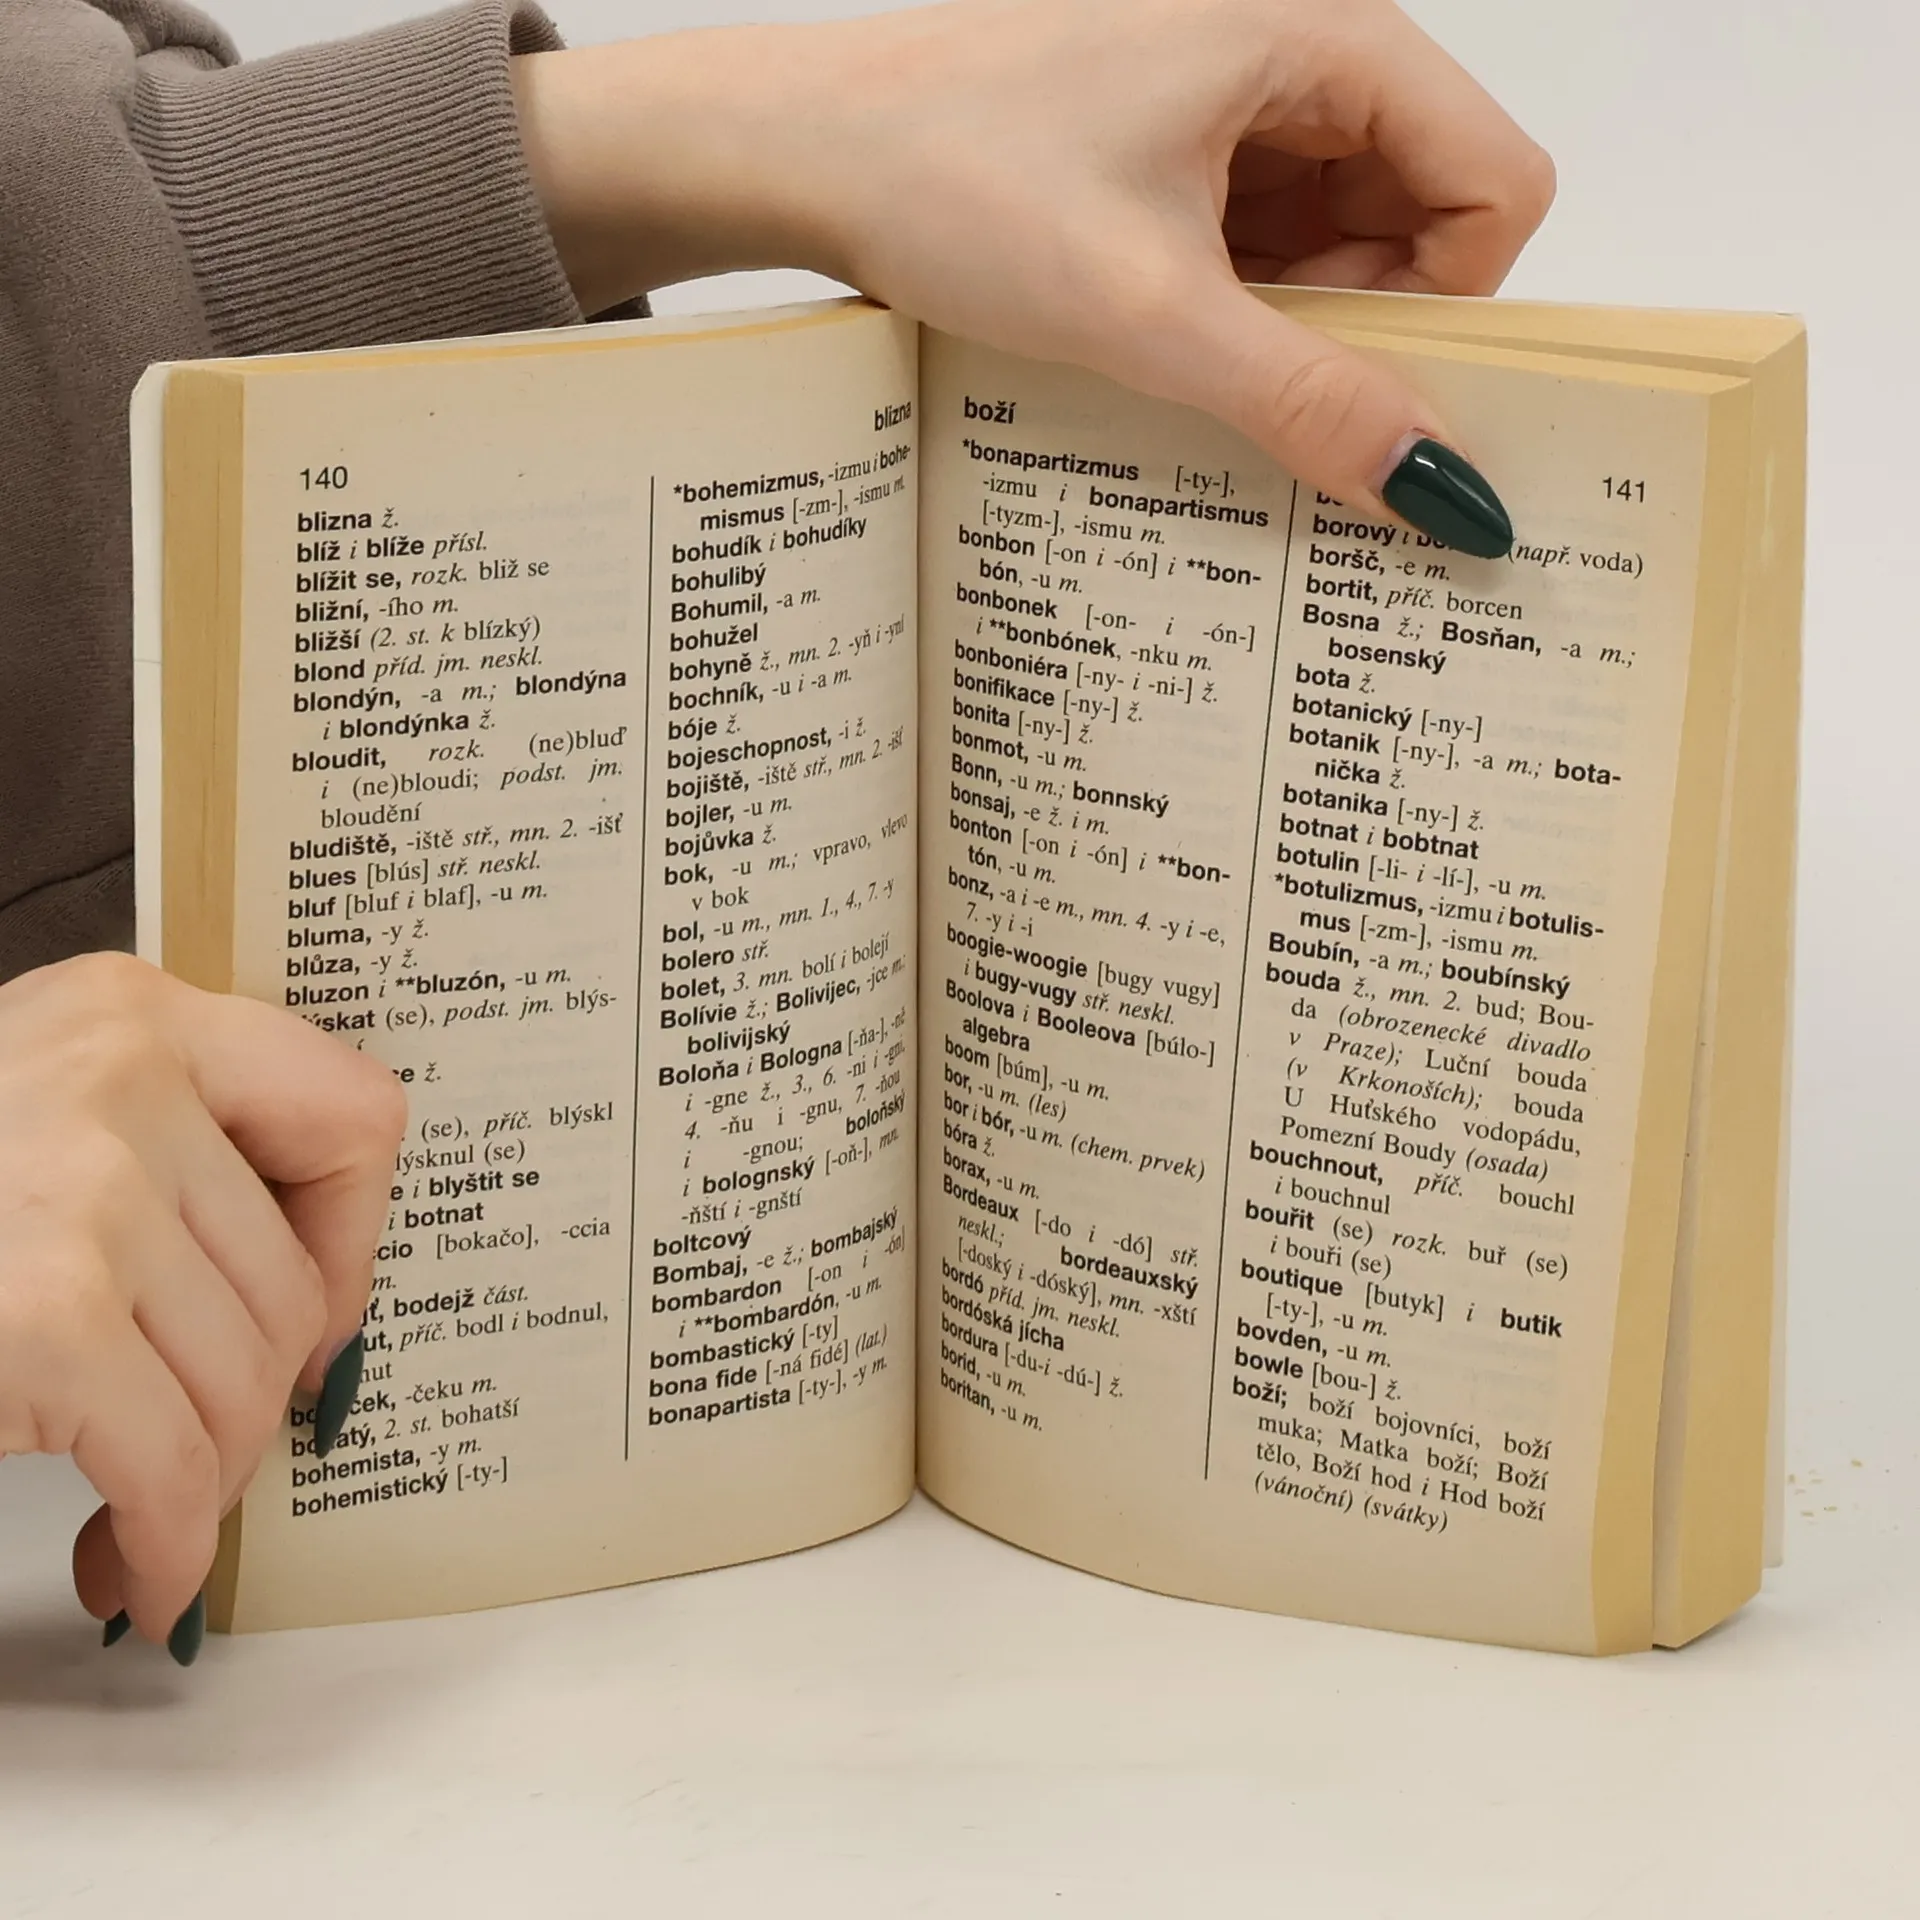 140
blizna
blizna ž.
blíž i blíže přísl.
blížit se, rozk. bliž se
bližní, -ího m.
bližší (2. st. k blízký)
blond příd. jm. neskl.
blondýn, -a m.; blondýna
i blondýnka ž.
bloudit, rozk. (ne)bluď
i (ne)bloudi; podst. jm.
bloudění
bludiště, -iště stř., mn. 2. -išť
blues [blús] stř. neskl.
bluf [bluf i blaf], -u m.
bluma, -y ž.
blůza, -y ž.
bluzon i **bluzón, -u m.
(se), podst. jm. blýs-
ž.
(se), příč. blýskl
(se)
i blyštit se
i botnat
[bokačo], -ccia
m.
bodejž část.
příč. bodl i bodnul,
-čeku m.
2. st. bohatší
bohemista, -y m.
bohemistický [-ty-]
*bohemizmus, -izmu i bohe-
mismus [-zm-], -ismu m.
bohudík i bohudíky
bohulibý
Bohumil, -a m.
bohužel
bohyně ž., mn. 2. -yň i -yní
bochník, -u i -a m.
bóje ž.
bojeschopnost, -i ž.
bojiště, -iště stř., mn. 2. -išť
bojler, -u m.
bojůvka ž.
bok, -u m.; vpravo, vlevo
v bok
bol, -u m., mn. 1., 4., 7. -y
bolero stř.
bolet, 3. mn. bolí i bolejí
Bolívie ž.; Bolivijec, -jce m.;
bolivijský
Boloňa i Bologna [-ňa-], -ně
i -gne ž., 3., 6. -ni i -gni,
4. -ňu i -gnu, 7. -ňou
i -gnou; boloňský
i bolognský [-oň-], mn.
-ňští i -gnští
boltcový
Bombaj, -e ž.; bombajský
bombardon [-on i -ón]
i **bombardón, -u m.
bombastický [-ty]
bona fide [-ná fidé] (lat.)
bonapartista [-ty-], -y m.
boží
141
*bonapartizmus [-ty-],
-izmu i bonapartismus
[-tyzm-], -ismu m.
bonbon [-on i -ón] i **bon-
bón, -u m.
bonbonek [-on- i -ón-]
i **bonbónek, -nku m.
bonboniéra [-ny- i -ni-] ž.
bonifikace [-ny-] ž.
bonita [-ny-] ž.
bonmot, -u m.
Bonn, -u m.; bonnský
bonsaj, -e ž. i m.
bonton [-on i -ón] i **bon-
tón, -u m.
bonz, -a i -e m., mn. 4. -y i -e,
7. -y i -i
boogie-woogie [bugy vugy]
i bugy-vugy stř. neskl.
Boolova i Booleova [búlo-]
algebra
boom [búm], -u m.
bor, -u m. (les)
bor i bór, -u m. (chem. prvek)
bóra ž.
borax, -u m.
Bordeaux [-do i -dó] stř.
neskl.; bordeauxský
[-doský i -dóský], mn. -xští
bordó příd. jm. neskl.
bordóská jícha
bordura [-du-i -dú-] ž.
borid, -u m.
boritan, -u m.
borový i (např. voda)
boršč, -e m.
bortit, příč. borcen
Bosna ž.; Bosňan, -a m.;
bosenský
bota ž.
botanický [-ny-]
botanik [-ny-], -a m.; bota-
nička ž.
botanika [-ny-] ž.
botnat i bobtnat
botulin [-li- i -lí-], -u m.
*botulizmus, -izmu i botulis-
mus [-zm-], -ismu m.
Boubín, -a m.; boubínský
bouda ž., mn. 2. bud; Bou-
da (obrozenecké divadlo
v Praze); Luční bouda
(v Krkonoších); bouda
U Huťského vodopádu,
Pomezní Boudy (osada)
bouchnout, příč. bouchl
i bouchnul
bouřit (se) rozk. buř (se)
i bouři (se)
boutique [butyk] i butik
[-ty-], -u m.
bovden, -u m.
bowle [bou-] ž.
boží; boží bojovníci, boží
muka; Matka boží; Boží
tělo, Boží hod i Hod boží
(vánoční) (svátky)